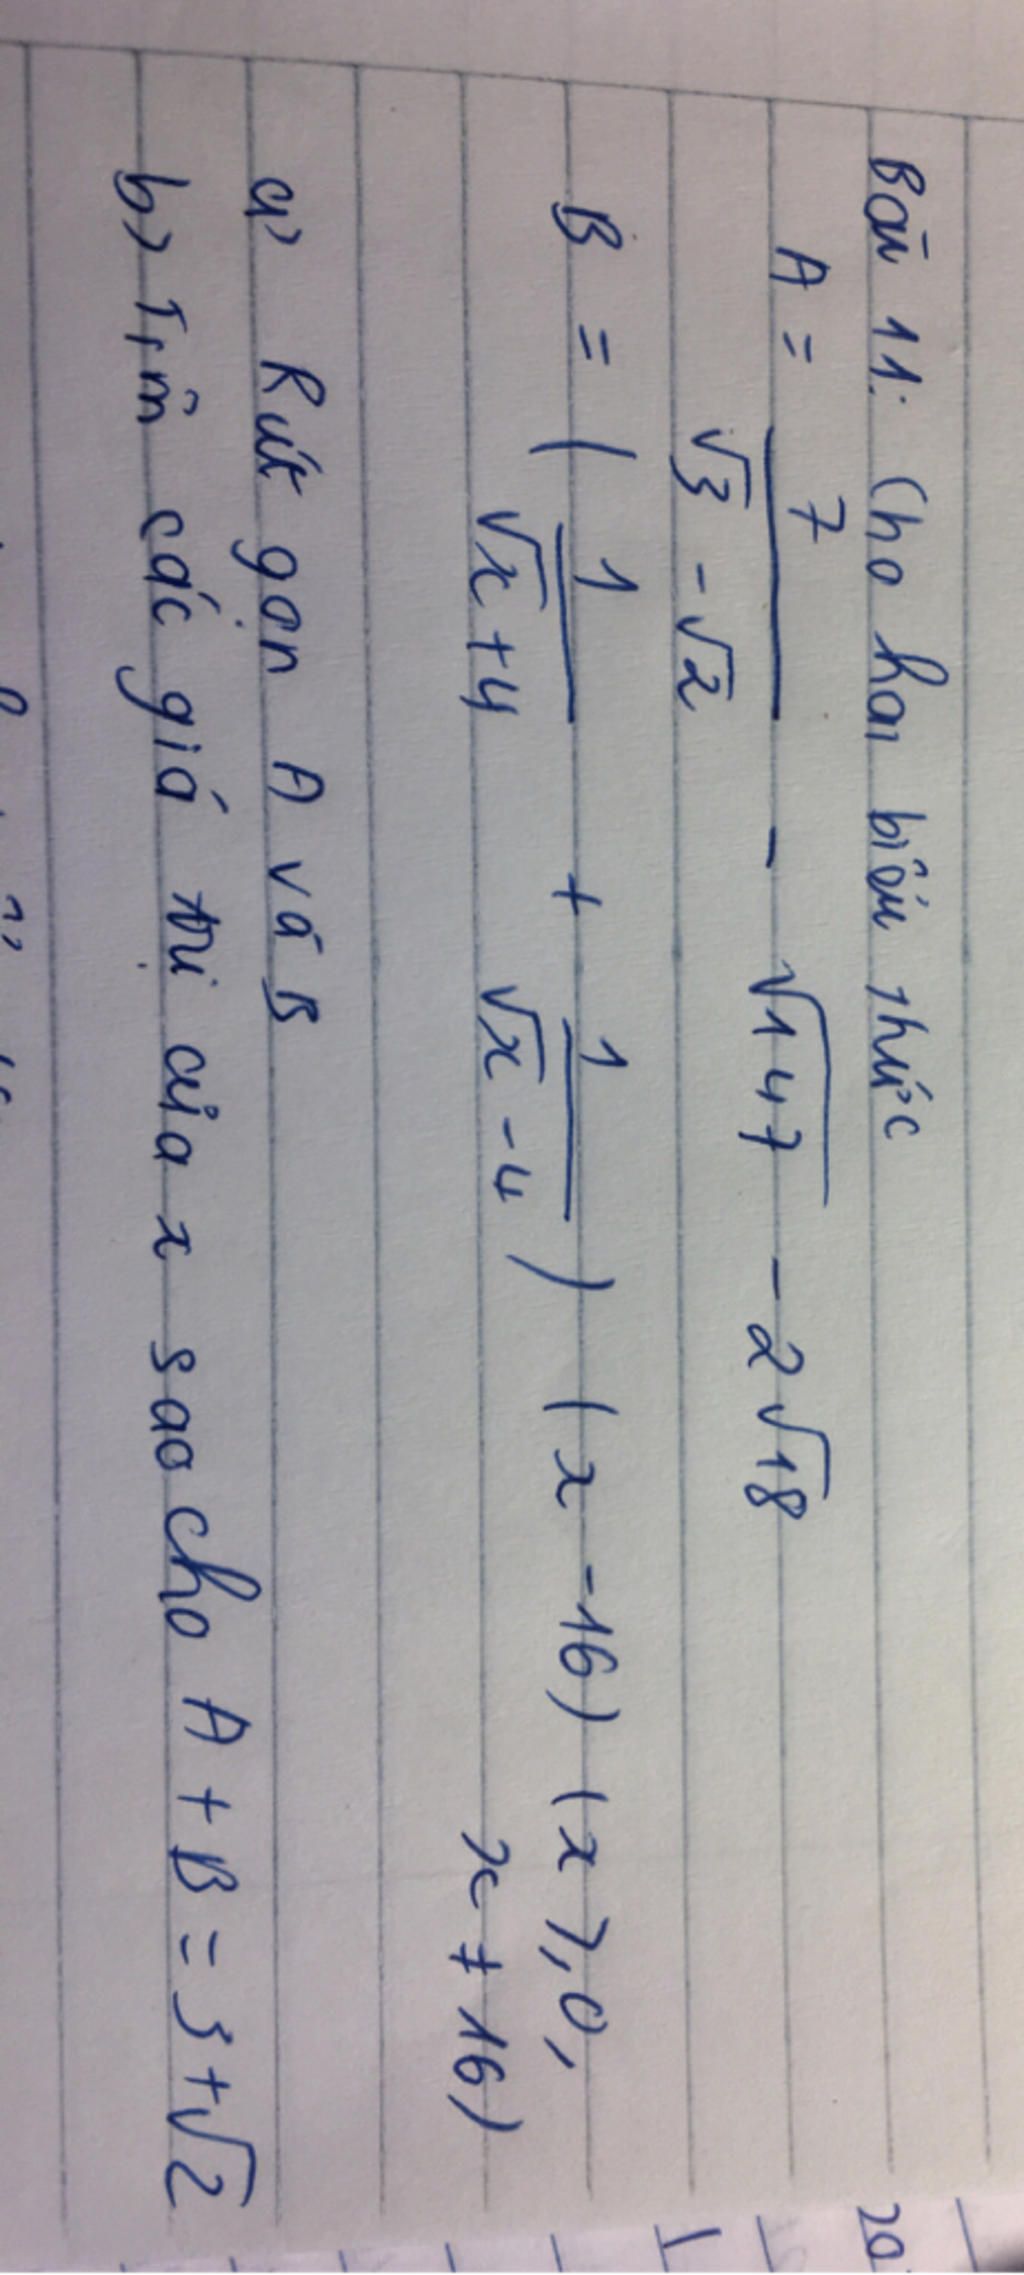 Bài 11: Cho hai biểu thức
A = 7/(√3 - √2) - √147 - 2√18
B = (1/(√x + 4) + 1/(√x - 4)) (x - 16) (x ⩾ 0,
x ≠ 16)
a) Rút gọn A và B
b) Tìm các giá trị của x sao cho A + B = 3 + √2
20